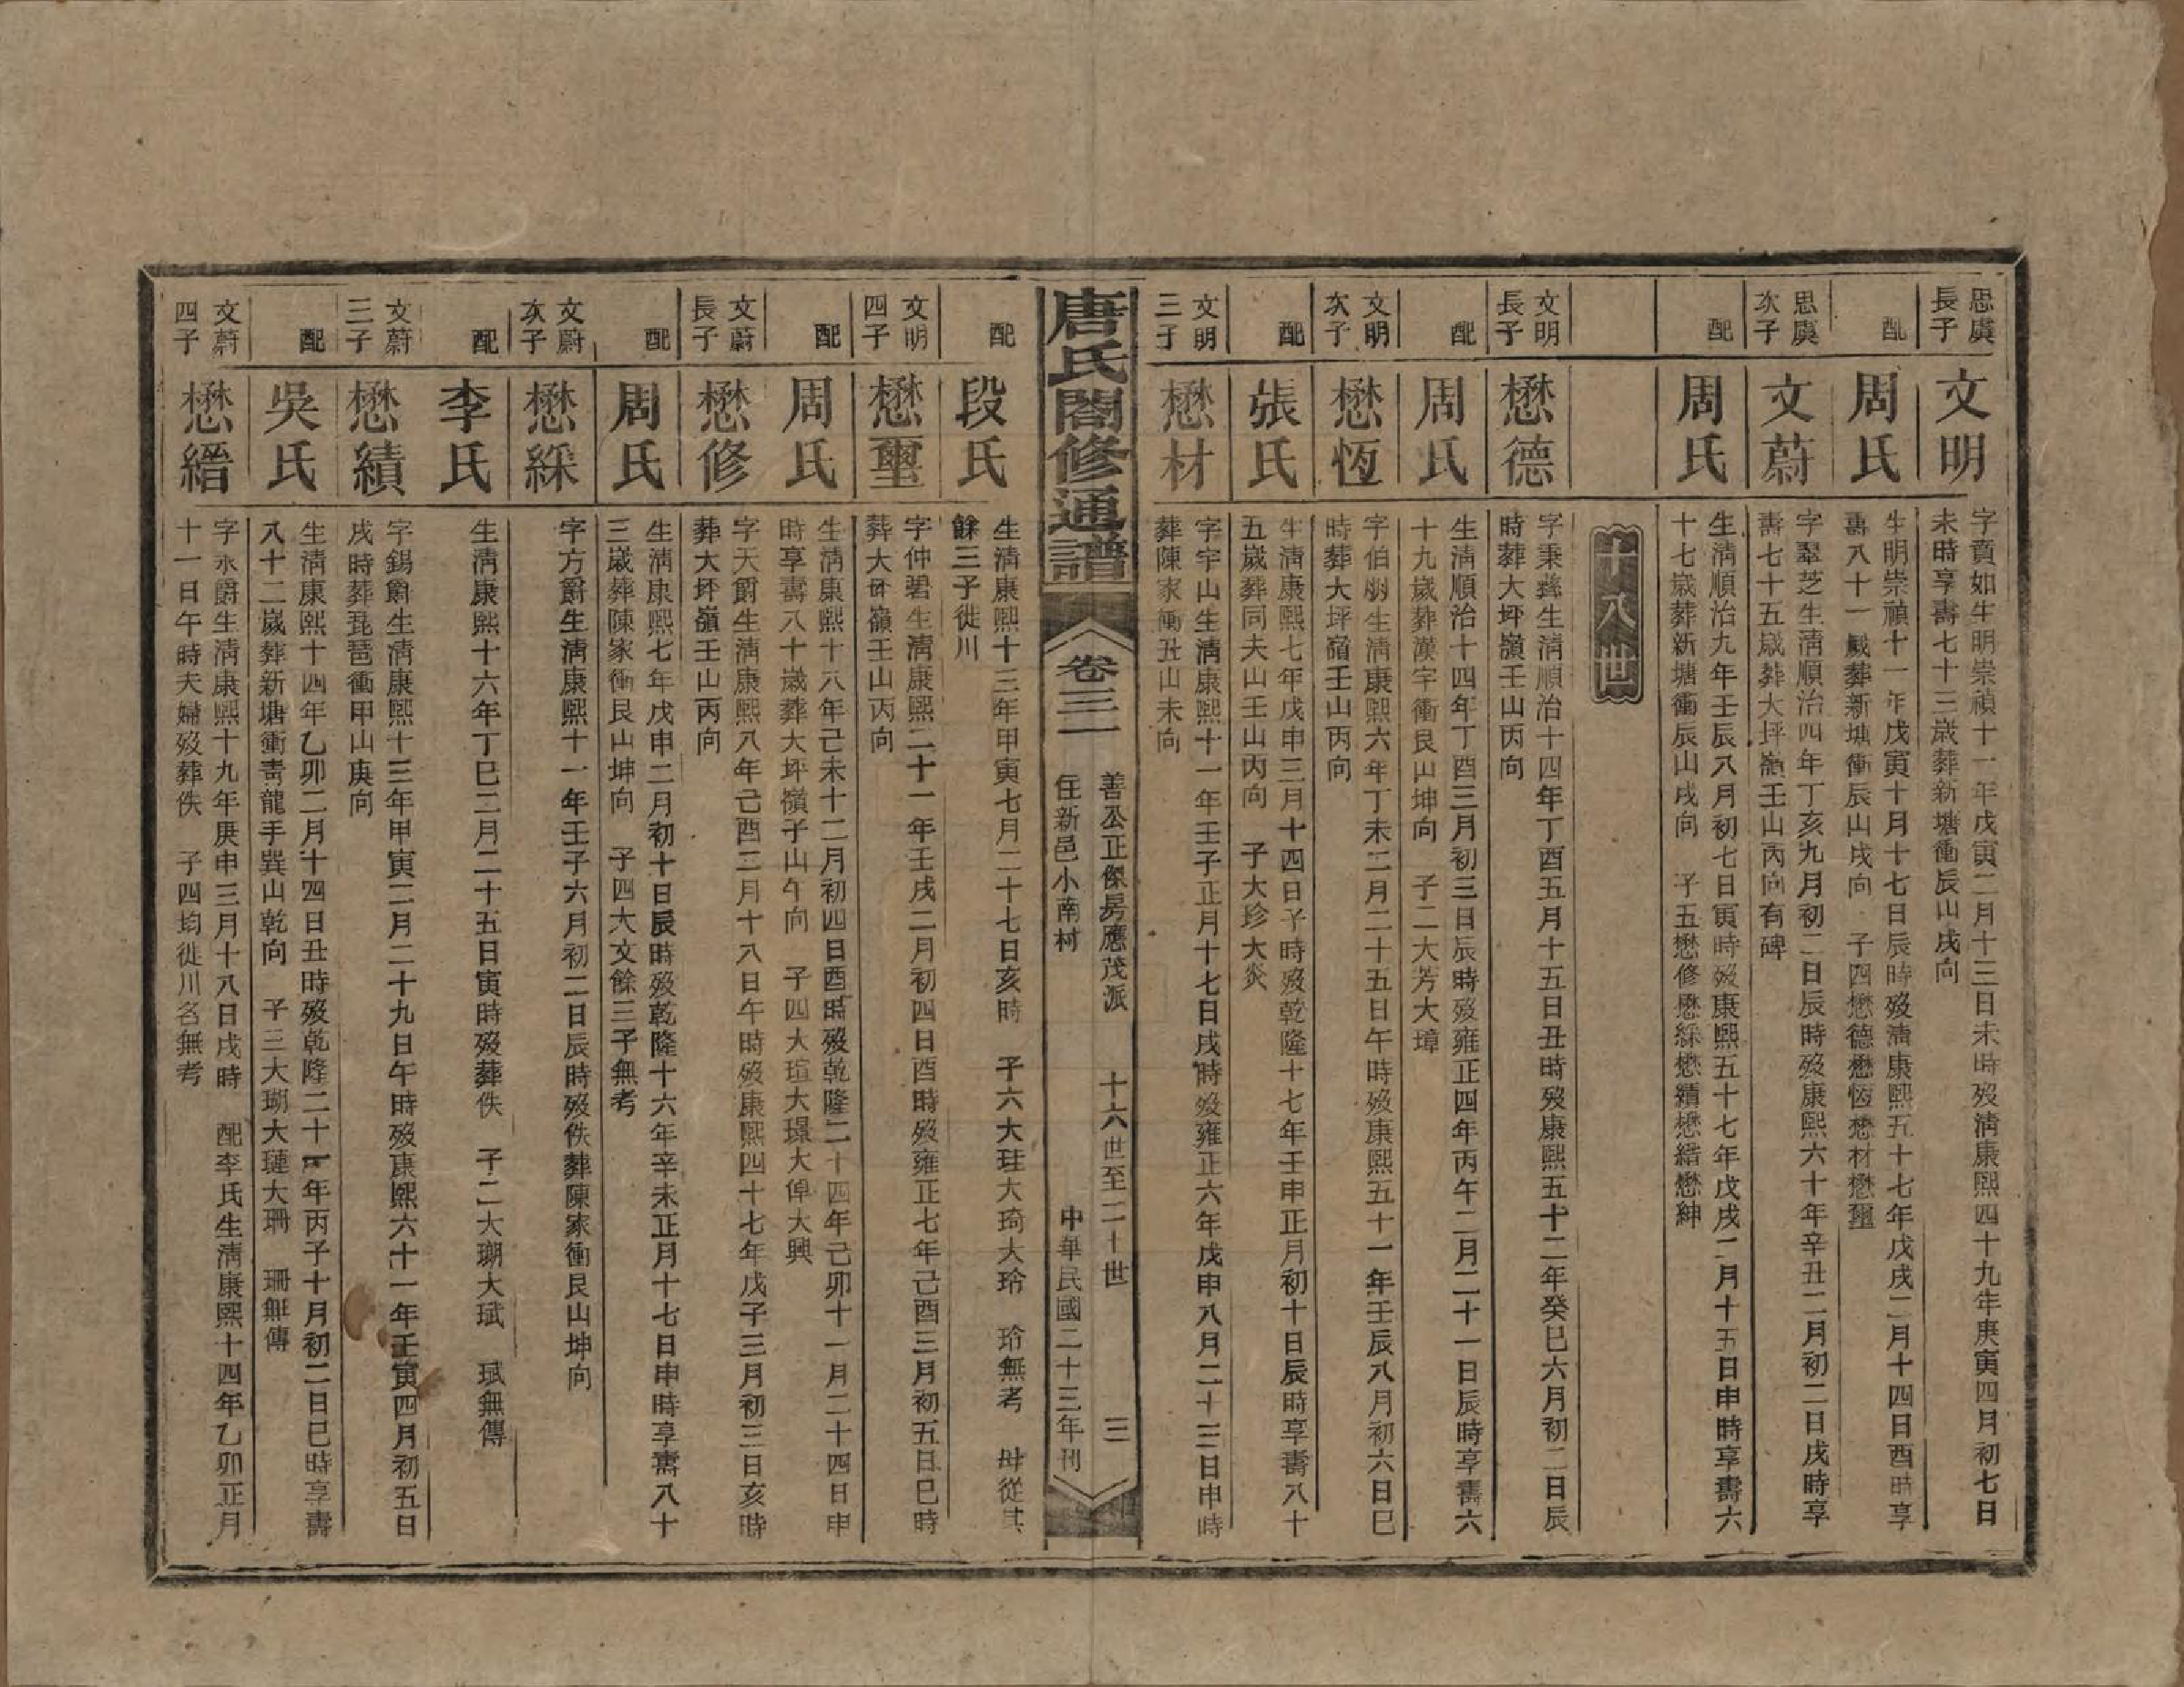 思虞
長子
文明
字賁如生明崇禎十一年戊寅二月十三日未時歿清康熙四十九年庚寅四月初七日
未時享壽七十三歲葬新塘衝辰山戌向
配
周氏
生明崇禎十一年戊寅十月十七日辰時歿清康熙五十七年戊戌二月十四日酉時享
壽八十一歲葬新塘衝辰山戌向 子四懋德懋恆懋材懋璽
思虞
次子
文蔚
字翠芝生清順治四年丁亥九月初二日辰時歿康熙六十年辛丑二月初二日戌時享
壽七十五歲葬大坪嶺壬山丙向有碑
配
周氏
生清順治九年壬辰八月初七日寅時歿康熙五十七年戊戌二月十五日申時享壽六
十七歲葬新塘衝辰山戌向 子五懋修懋綵懋績懋縉懋紳
十八世
文明
長子
懋德
字秉彝生清順治十四年丁酉五月十五日丑時歿康熙五十二年癸巳六月初二日辰
時葬大坪嶺壬山丙向
配
周氏
生清順治十四年丁酉三月初三日辰時歿雍正四年丙午二月二十一日辰時享壽六
十九歲葬漢字衝艮山坤向 子二大芳大璋
文明
次子
懋恆
字伯朋生清康熙六年丁未二月二十五日午時歿康熙五十一年壬辰八月初六日巳
時葬大坪嶺壬山丙向
配
張氏
生清康熙七年戊申三月十四日子時歿乾隆十七年壬申正月初十日辰時享壽八十
五歲葬同夫山壬山丙向 子大珍大炎
文明
三子
懋材
字宇山生清康熙十一年壬子正月十七日戌時歿雍正六年戊申八月二十三日申時
葬陳家衝丑山未向
唐氏閤修通譜
卷三一
善公正傑房應茂派 十六世至二十世 三
住新邑小南村 中華民國二十三年刊
配
段氏
生清康熙十三年甲寅七月二十七日亥時 子六大珪大琦大玲 玲無考 毌從其
餘三子徙川
文明
四子
懋璽
字仲碧生清康熙二十一年壬戌二月初四日酉時歿雍正七年己酉三月初五日巳時
葬大𡶶嶺壬山丙向
配
周氏
生清康熙十八年己未十二月初四日酉時歿乾隆二十四年己卯十一月二十四日申
時享壽八十歲葬大坪嶺子山午向 子四大瑄大璟大偉大興
文蔚
長子
懋修
字天爵生清康熙八年己酉三月十八日午時歿康熙四十七年戊子三月初三日亥時
葬大坪嶺壬山丙向
配
周氏
生清康熙七年戊申二月初十日辰時歿乾隆十六年辛未正月十七日申時享壽八十
三歲葬陳家衝艮山坤向 子四大文餘三子無考
文蔚
次子
懋綵
字方爵生清康熙十一年壬子六月初二日辰時歿佚葬陳家衝艮山坤向
配
李氏
生清康熙十六年丁巳二月二十五日寅時歿葬佚 子二大瑚大珷 珷無傳
文蔚
三子
懋績
字錫爵生清康熙十三年甲寅二月二十九日午時歿康熙六十一年壬寅四月初五日
戌時葬琵琶衝甲山庚向
配
吳氏
生清康熙十四年乙卯二月十四日丑時歿乾隆二十一年丙子十月初二日巳時享壽
八十二歲葬新塘衝青龍手巽山乾向 子三大瑚大璉大珊 珊無傳
文蔚
四子
懋縉
字永爵生清康熙十九年庚申三月十八日戌時 配李氏生清康熙十四年乙卯正月
十一日午時夫婦歿葬佚 子四均徙川名無考